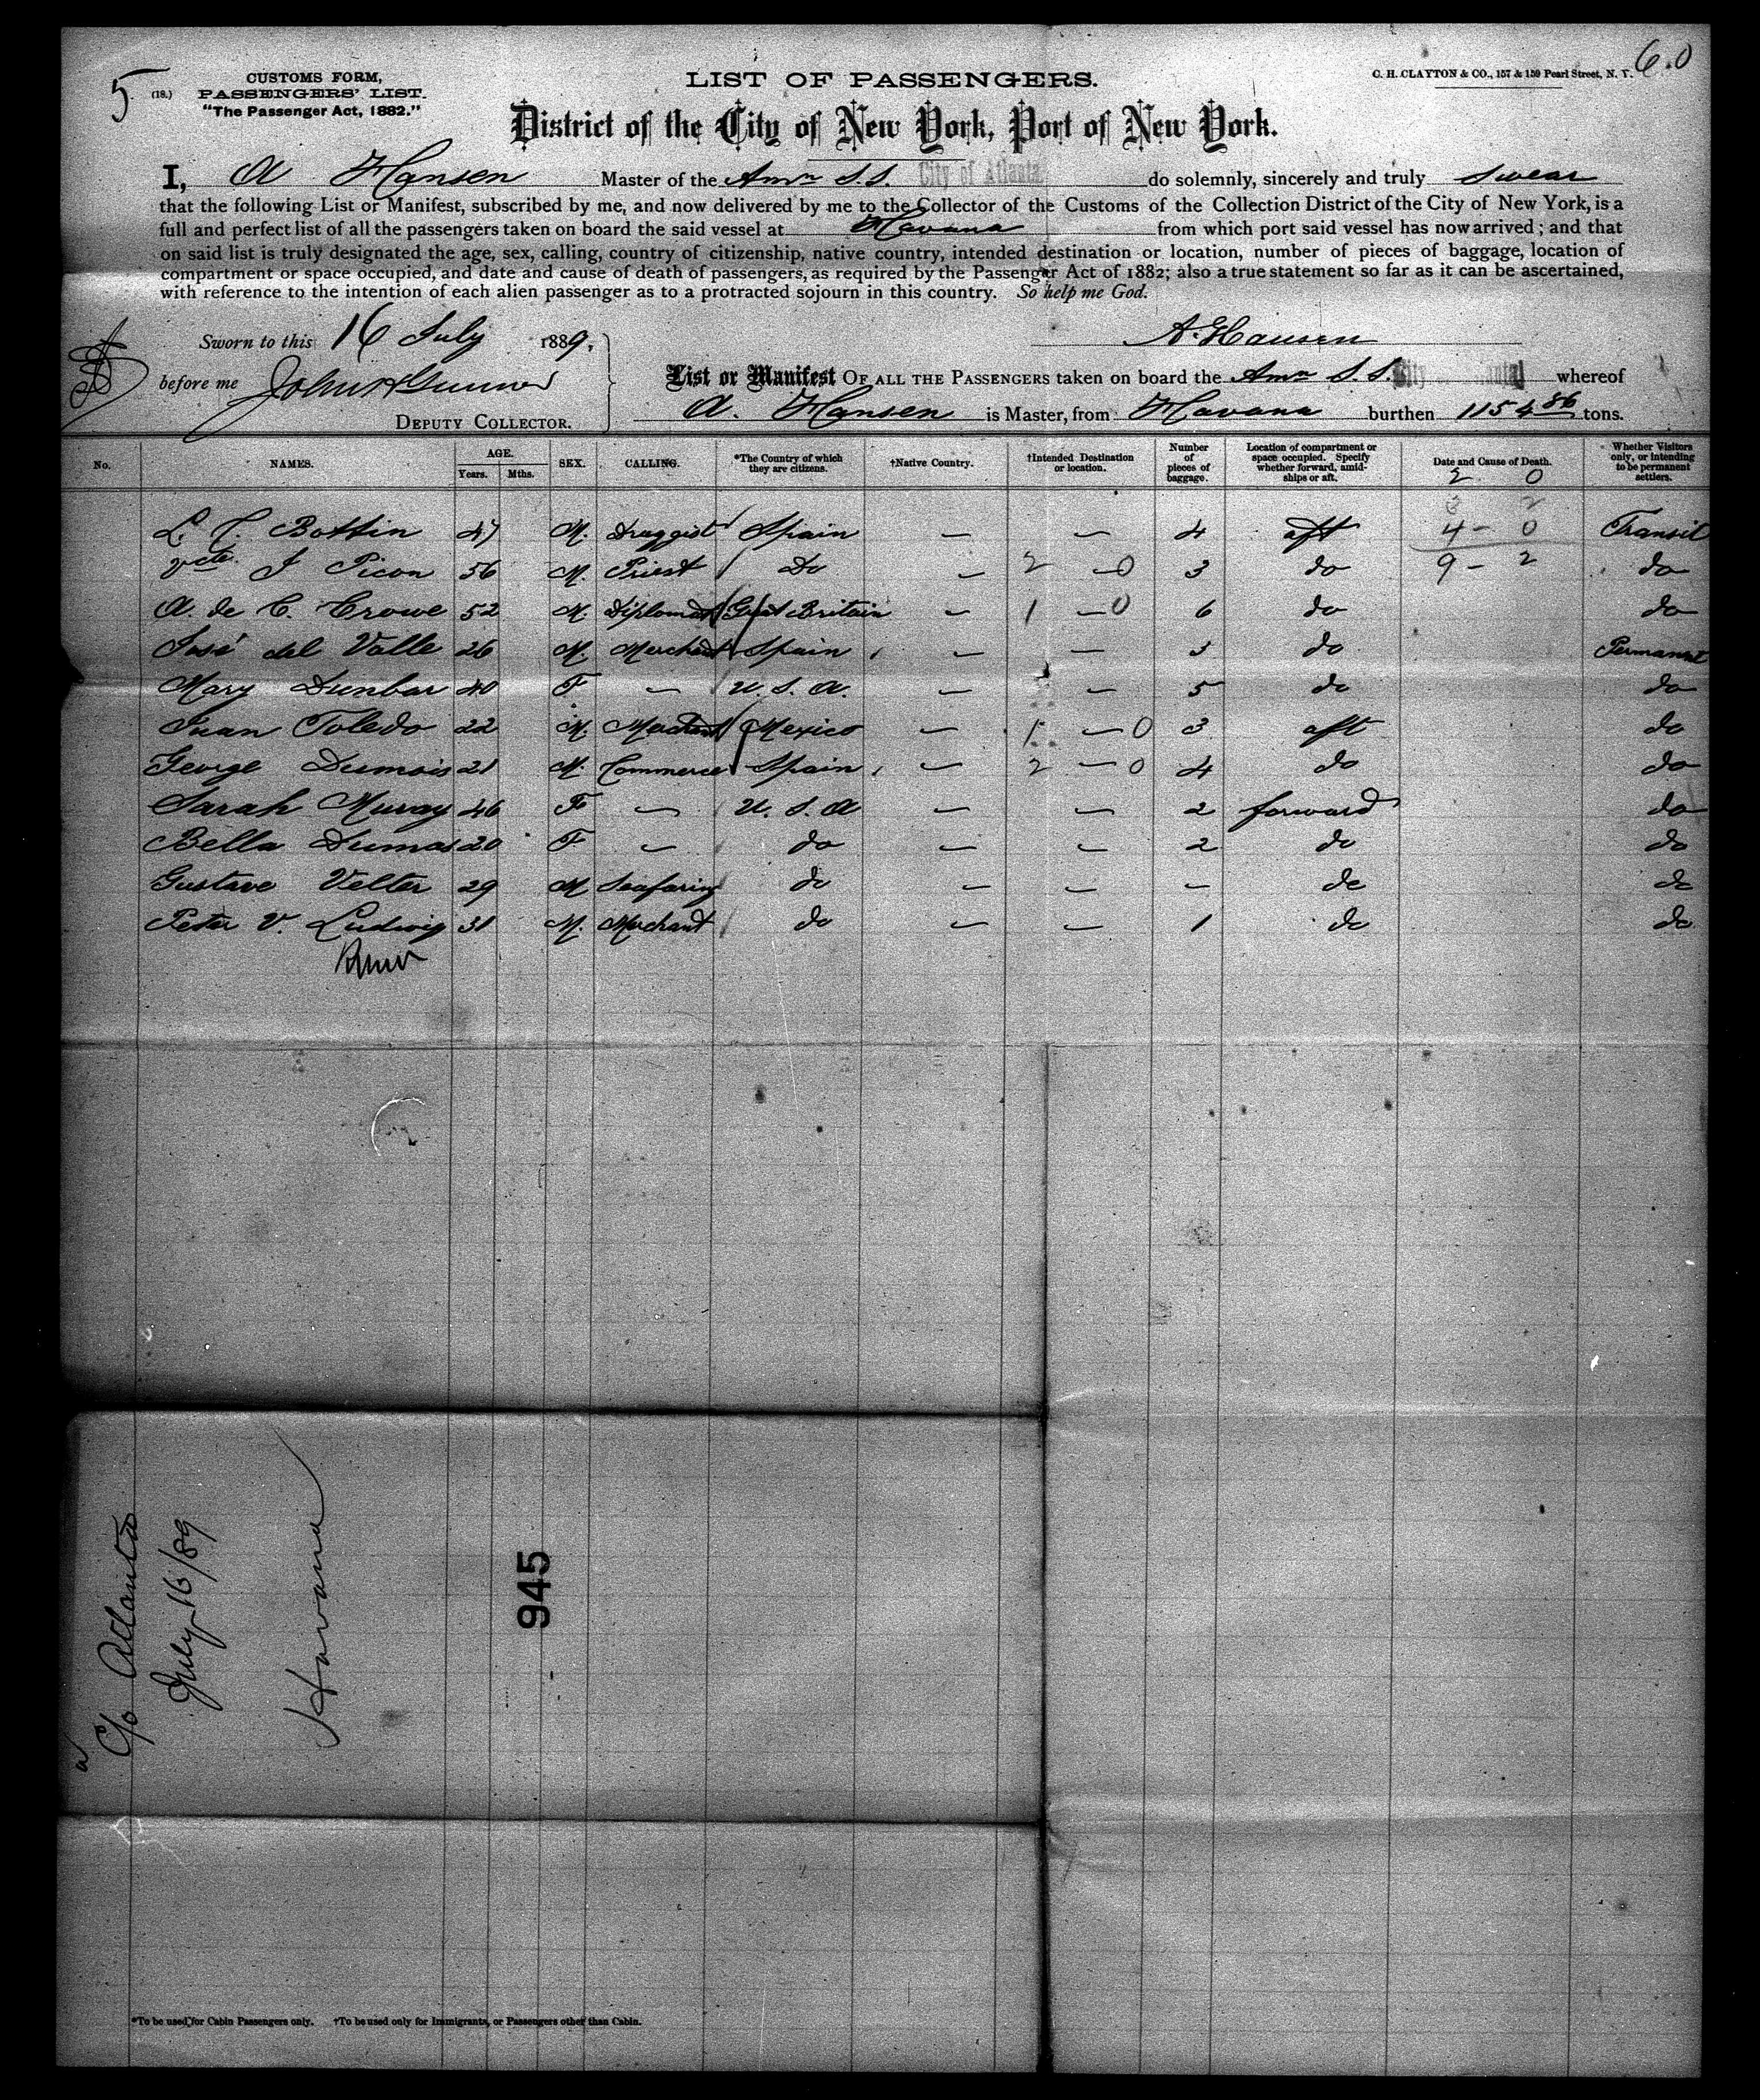 5
(18.)
CUSTOMS FORM,
PASSENGERS' LIST.
"The Passenger Act, 1882."
LIST OF PASSENGERS.
C. H. CLAYTON & CO., 157 & 159 Pearl Street, N. Y.
6.0
District of the City of New York, Port of New York.
I, A Hansen Master of the Amn S.S. City of Atlanta do solemnly, sincerely and truly swear
that the following List or Manifest, subscribed by me, and now delivered by me to the Collector of the Customs of the Collection District of the City of New York, is a
full and perfect list of all the passengers taken on board the said vessel at Havana from which port said vessel has now arrived; and that
on said list is truly designated the age, sex, calling, country of citizenship, native country, intended destination or location, number of pieces of baggage, location of
compartment or space occupied, and date and cause of death of passengers, as required by the Passenger Act of 1882; also a true statement so far as it can be ascertained,
with reference to the intention of each alien passenger as to a protracted sojourn in this country. So help me God.
Sworn to this 16 July 1889,
A. Hansen
before me
DEPUTY COLLECTOR.
List or Manifest OF ALL THE PASSENGERS taken on board the Amn S.S. City whereof
A. Hansen is Master, from Havana burthen 1154 86 tons.
No. NAMES. AGE. Years. Mths. SEX. CALLING. *The Country of which they are citizens. †Native Country. †Intended Destination or location. Number of pieces of baggage. Location of compartment or space occupied. Specify whether forward, amidships or aft. Date and Cause of Death. Whether Visitors only, or intending to be permanent settlers.
2 0
3 2
L. C. Bottin 47 M. Druggist Spain — — 4 aft 4 - 0 Transit
J Picon 56 M. Priest Do — 2 — 0 3 do 9 - 2 do
A. de C. Crowe 52 M. Diplomat Great Britain — 1 — 0 6 do do
José del Valle 26 M. Merchant Spain — — 3 do Permanent
Mary Dunbar 40 F — U. S. A. — — 5 do do
Juan Toledo 22 M. Merchant Mexico — 1 — 0 3 aft do
George Dumois 21 M. Commerce Spain — 2 — 0 4 do do
Sarah Muray 46 F — U. S. A — — 2 forward do
Bella Dumas 20 F — do — — 2 do do
Gustave Velter 29 M Seafaring do — — — do do
Peter V. Ludwig 31 M. Merchant do — — 1 do do
C/o Atlanta
July 16/89
Havana
945
*To be used for Cabin Passengers only. †To be used only for Immigrants, or Passengers other than Cabin.